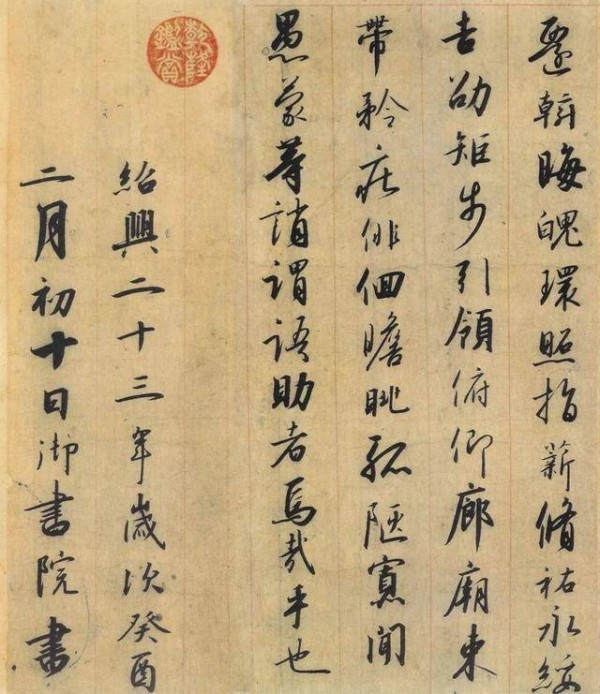 遷斡晦魄環照指薪脩祐永綏
吉劭矩步引領俯仰廊廟束
帶矜莊俳佪瞻眺孤陋寡聞
愚蒙等誚謂語助者焉哉乎也
紹興二十三年歲次癸酉
二月初十日御書院書
乾隆鑑賞